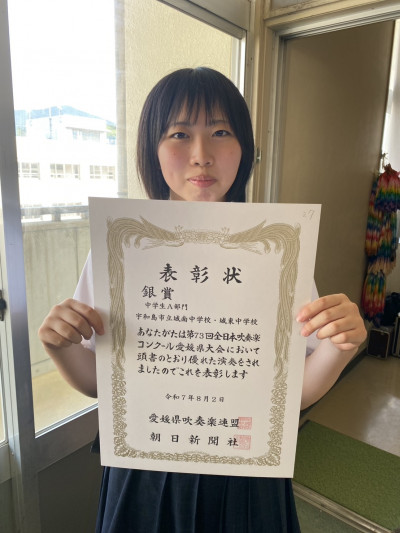 27
表彰状
銀賞
中学生A部門
宇和島市立城南中学校・城東中学校
あなたがたは第73回全日本吹奏楽
コンクール愛媛県大会において
頭書のとおり優れた演奏をされ
ましたのでこれを表彰します
令和7年8月2日
愛媛県吹奏楽連盟
朝日新聞社